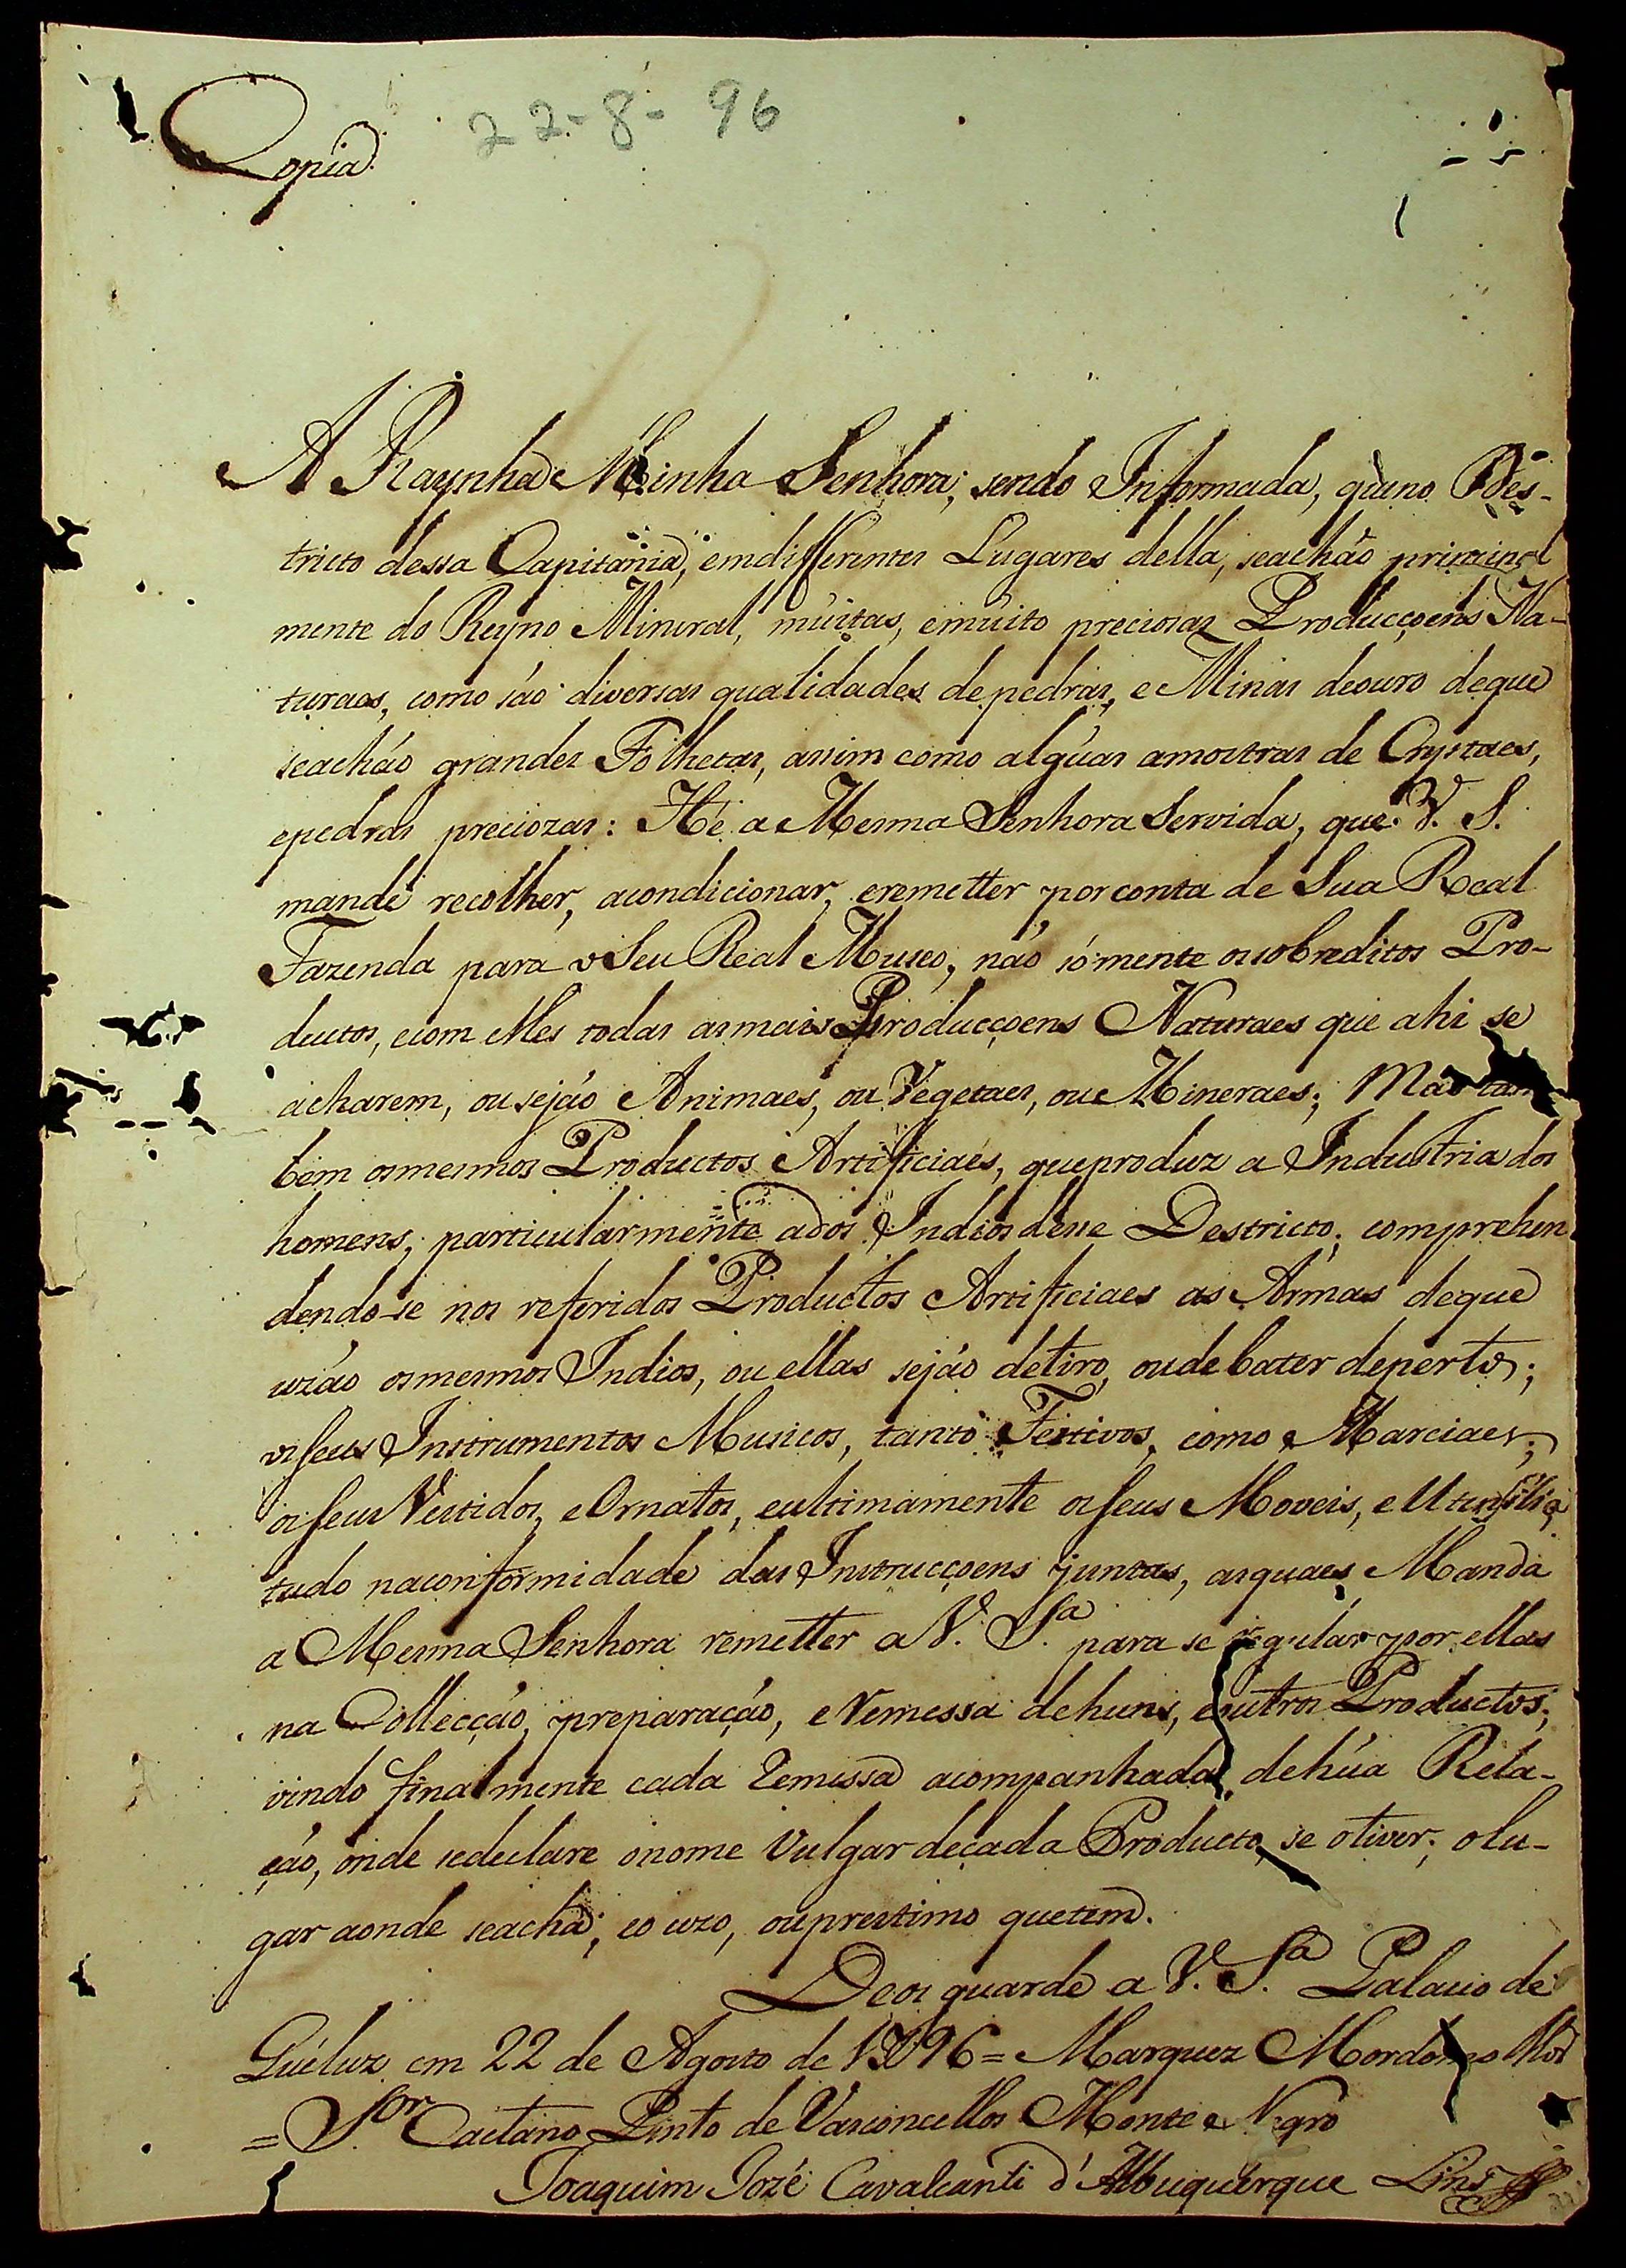 Copia.
22-8-96
A Raynha Minha Senhora, sendo Informada, q̀ no Des-
tricto dessa Capitania, em differentes Lugares della, seachão principal
mente do Reyno Mineral, muitas, emuito preciosas Producçoens Na-
turaes, como são diversas qualidades de pedras, e Minas deouro deque
seachão grandes Folhetas, assim como algũas amostras de Crystaes,
epedras preciozas: Hé a Mesma Senhora Servida, que V. S.
mande recolher, acondicionar, eremetter por conta de Sua Real
Fazenda para o Seu Real Museo, não sómente os sobreditos Pro-
ductos, ecom elles todas as mais Producçoens Naturaes que ahi se
acharem, ou sejão Animaes, ou Vegetaes, ou Mineraes; Mas tam
bem osmesmos Productos Artificiaes, queproduz a Industria dos
homens, particularmente ados Indios desse Destricto; comprehen
dendo-se nos referidos Productos Artificiaes as Armas deque
uzão osmesmos Indios, ou ellas sejão detiro, oude bater deperto;
os seus Instrumentos Musicos, tanto Festivos, como Marciaes;
os seus Vestidos, e Ornatos, eultimamente os seus Moveis, e Utensilios,
tudo naconformidade das Instrucçoens juntas, asquaes Manda
a Mesma Senhora remetter a V. S.ª para se regular por ellas
na Collecção, preparação, e Remessa dehuns, eoutros Productos;
vindo finalmente cada Remessa acompanhada dehũa Rela-
ção, onde sedeclare onome Vulgar decada Producto, se otiver; olu-
gar aonde seacha; eo uzo, ouprestimo quetem.
Deos guarde a V. S.ª Palacio de
Quéluz em 22 de Agosto de 1796 = Marquez Mordomo Mór
= S.or Caetano Pinto de Vasconcellos Monte Negro
Joaquim Jozé Cavalcanti d'Albuquerque Lins